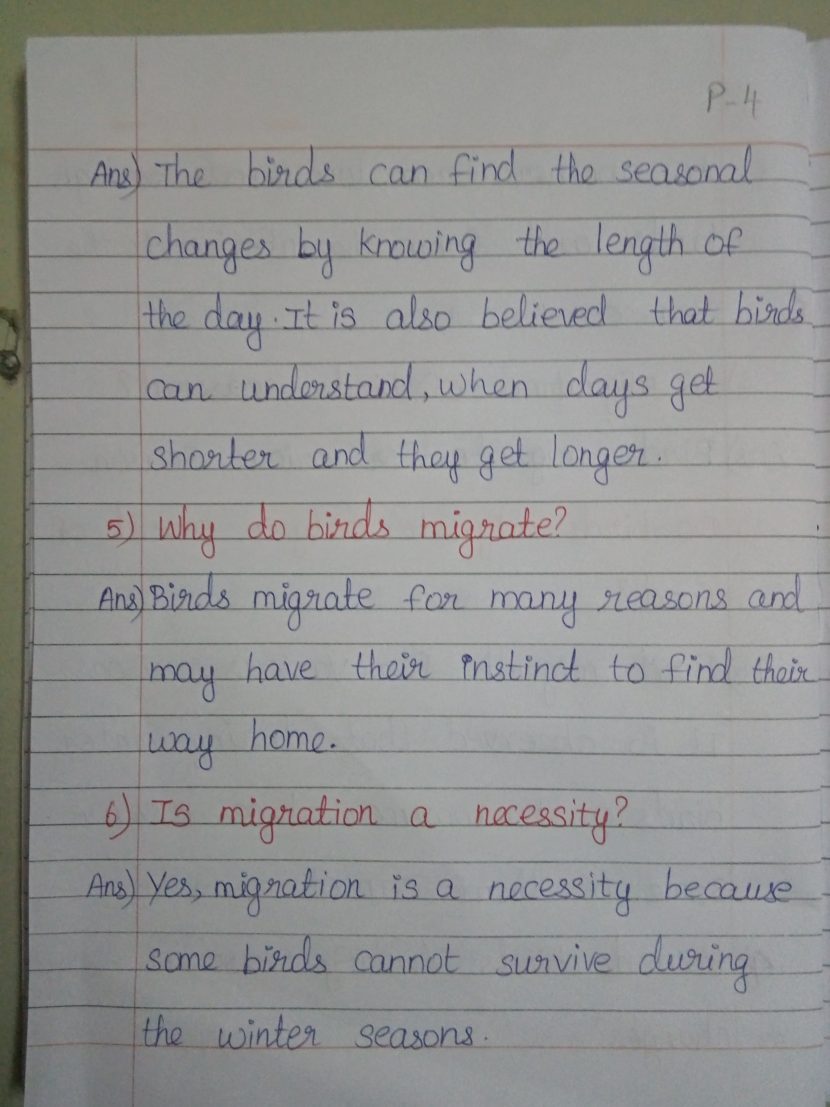 P-4
Ans) The birds can find the seasonal
changes by knowing the length of
the day. It is also believed that birds
can understand, when days get
shorter and they get longer.
5) Why do birds migrate?
Ans) Birds migrate for many reasons and
may have their instinct to find their
way home.
6) Is migration a necessity?
Ans) Yes, migration is a necessity because
some birds cannot survive during
the winter seasons.